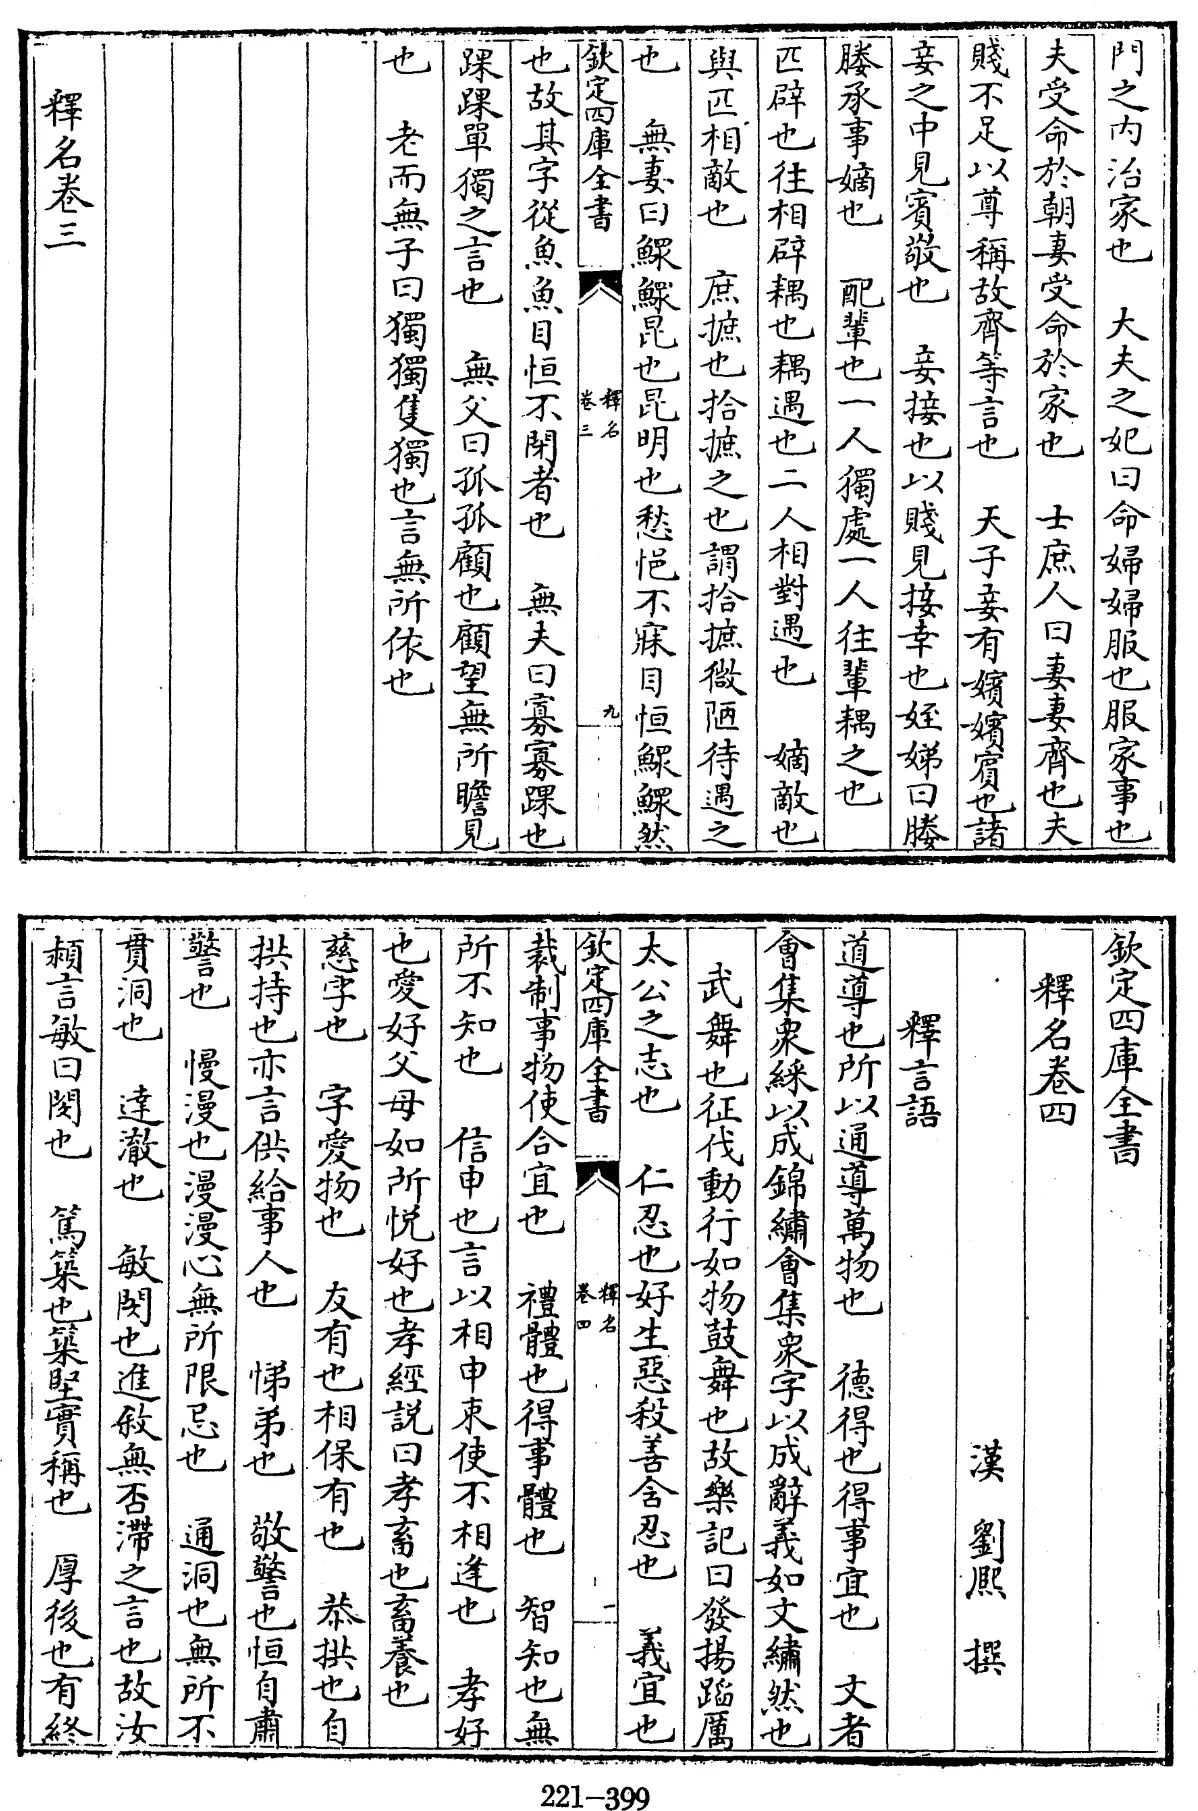 門之内治家也　大夫之妃曰命婦婦服也服家事也
夫受命於朝妻受命於家也　士庶人曰妻妻齊也夫
賤不足以尊稱故齊等言也　天子妾有嬪嬪賓也諸
妾之中見賓敬也　妾接也以賤見接幸也姪娣曰媵
媵承事嫡也　配輩也一人獨處一人往輩耦之也
匹辟也往相辟耦也耦遇也二人相對遇也　嫡敵也
與匹相敵也　庶摭也拾摭之也謂拾摭微陋待遇之
也　無妻曰鰥鰥昆也昆明也愁悒不寐目恒鰥鰥然
欽定四庫全書
釋名
卷三
九
也故其字從魚魚目恒不閉者也　無夫曰寡寡踝也
踝踝單獨之言也　無父曰孤孤顧也顧望無所瞻見
也　老而無子曰獨獨隻獨也言無所依也
釋名卷三
欽定四庫全書
釋名卷四
漢　劉熙　撰
釋言語
道導也所以通導萬物也　德得也得事宜也　文者
會集衆綵以成錦繡會集衆字以成辭義如文繡然也
武舞也征伐動行如物鼓舞也故樂記曰發揚蹈厲
太公之志也　仁忍也好生惡殺善含忍也　義宜也
欽定四庫全書
釋名
卷四
一
裁制事物使合宜也　禮體也得事體也　智知也無
所不知也　信申也言以相申束使不相逢也　孝好
也愛好父母如所悦好也孝經説曰孝畜也畜養也
慈字也　字愛物也　友有也相保有也　恭拱也自
拱持也亦言供給事人也　悌弟也　敬警也恒自肅
警也　慢漫也漫漫心無所限忌也　通洞也無所不
貫洞也　達澈也　敏閔也進敘無否滯之言也故汝
頼言敏曰閔也　篤築也築堅實稱也　厚後也有終
221-399